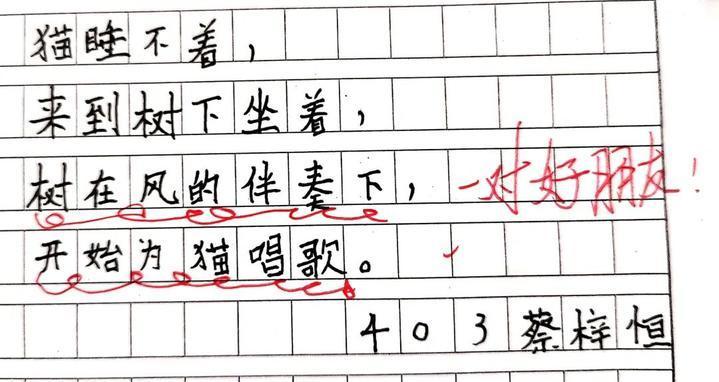 猫睡不着，
来到树下坐着，
树在风的伴奏下，一对好朋友！
开始为猫唱歌。
403蔡梓恒